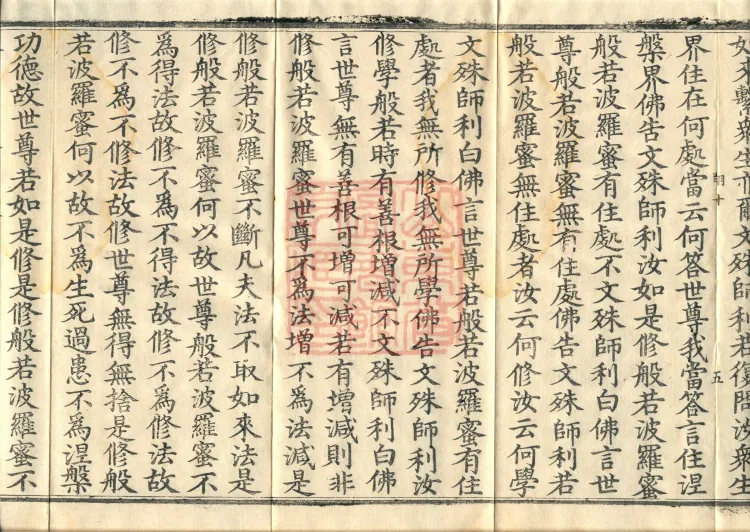 衆生亦爾文殊師利若復問汝衆生
十 五
界住在何處當云何答世尊我當答言住涅
槃界佛告文殊師利汝如是修般若波羅蜜
般若波羅蜜有住處不文殊師利白佛言世
尊般若波羅蜜無有住處佛告文殊師利若
般若波羅蜜無住處者汝云何修汝云何學
文殊師利白佛言世尊若般若波羅蜜有住
處者我無所修我無所學佛告文殊師利汝
修學般若時有善根增減不文殊師利白佛
言世尊無有善根可增可減若有增減則非
修般若波羅蜜世尊不爲法增不爲法減是
修般若波羅蜜不斷凡夫法不取如來法是
修般若波羅蜜何以故世尊般若波羅蜜不
爲得法故修不爲不得法故修不爲修法故
修不爲不修法故修世尊無得無捨是修般
若波羅蜜何以故不爲生死過患不爲涅槃
功德故世尊若如是修是修般若波羅蜜不